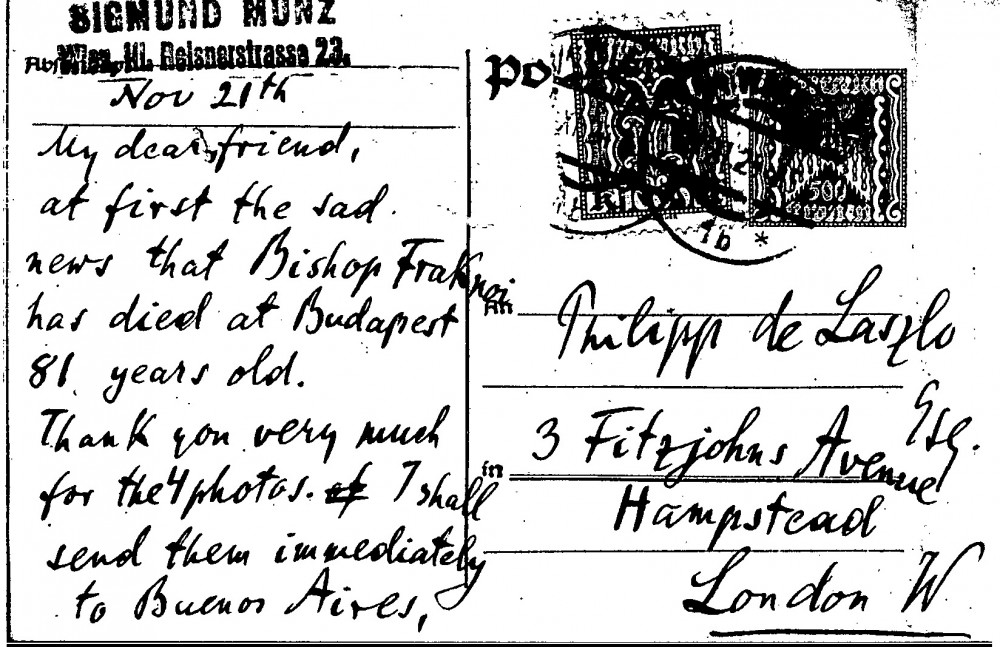 SIGMUND MÜNZ
Wien, III. Reisnerstrasse 23.
Nov 21th
My dear friend,
at first the sad
news that Bishop Fraknoi
has died at Budapest
81 years old.
Thank you very much
for the 4 photos. I shall
send them immediately
to Buenos Aires,
Po
500
1b *
An
Philipp de Laszlo
Esq.
3 Fitzjohns Avenue
in
Hampstead
London W